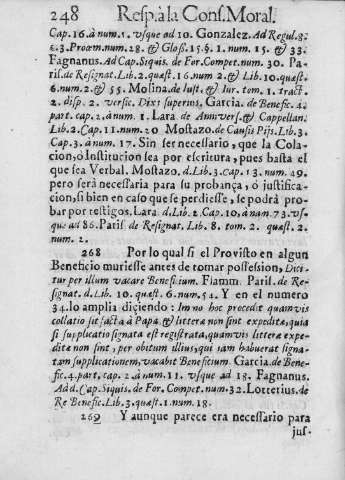 248 Resp. à la Cons. Moral.
Cap. 16. à num. 1. vsque ad 10. Gonzalez. Ad Regul. 8.
§. 3. Proœm. num. 28. & Gloß. 15. §. 1. num. 15. & 33.
Fagnanus. Ad Cap. Siquis. de For. Compet. num. 30. Pa-
ris. de Resignat. Lib. 2. quæst. 16. num 2. & Lib. 10. quæst.
6. num. 2. & 55. Molina. de Iust. & Iur. tom. 1. tract.
2. disp. 2. versic. Dixi superius. Garcia. de Benefic. 4.
part. cap. 2. à num. 1. Lara de Annivers. & Cappellan.
Lib. 2. Cap. 11. num. 20 Mostazo. de Causis Pijs. Lib. 3.
Cap. 3. à num. 17. Sin ser necessario, que la Cola-
cion, ò Institucion sea por escritura, pues basta el
que sea Verbal. Mostazo. d. Lib. 3. Cap. 13. num. 49.
pero serà necessaria para su probança, ò justifica-
cion, si bien en caso que se perdiesse, se podrà pro-
bar por testigos. Lara. d. Lib. 2. Cap. 10. à num. 73. vs-
que ad 86. Paris. de Resignat. Lib. 8. tom. 2. quæst. 2.
num. 2.
268 Por lo qual si el Provisto en algun
Beneficio muriesse antes de tomar possession, Dici-
tur per illum vacare Beneficium. Flamm. Paris. de Re-
signat. d. Lib. 10. quæst. 6. num. 54. Y en el numero
34. lo amplia diçiendo: Im no hoc procedit quamvis
collatio sit facta à Papa & litteræ non sint expeditæ, quia
si supplicatio signata est registrata, quamvis litteræ expe-
ditæ non sint, per obitum illius, qui iam habuerat signa-
tam supplicationem, vacabit Beneficium. Garcia. de Bene-
fic. 4. part. cap. 2. à num. 11. vsque ad 18. Fagnanus.
Ad d. Cap. Siquis. de For. Compet. num. 32. Lotterius. de
Re Benefic. Lib. 3. quæst. 1. num. 18.
269 Y aunque parece era necessario para
jus-